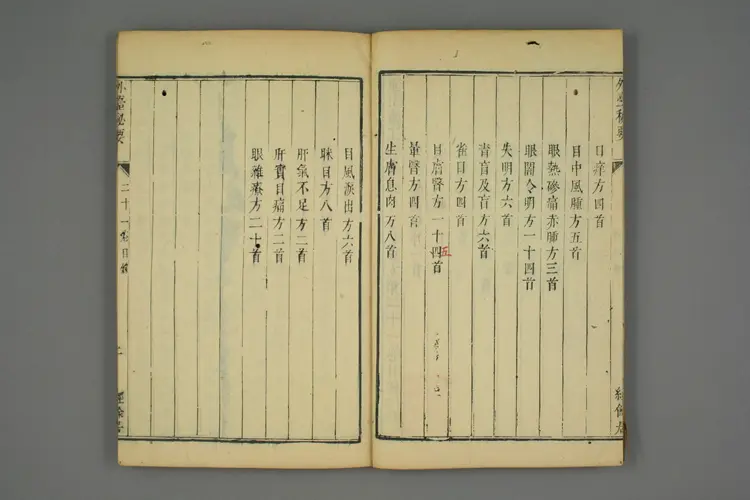 目痒方四首
目中風腫方五首
眼熱磣痛赤腫方三首
眼闇令明方一十四首
失明方六首
青盲及盲方六首
雀目方四首
目膚瞖方一十四首
五
暈瞖方四首
生膚息肉方八首
目風淚出方六首
眯目方八首
肝氣不足方二首
肝實目痛方二首
眼雜療方二十首
外臺秘要
二十一卷目錄
二
經餘居